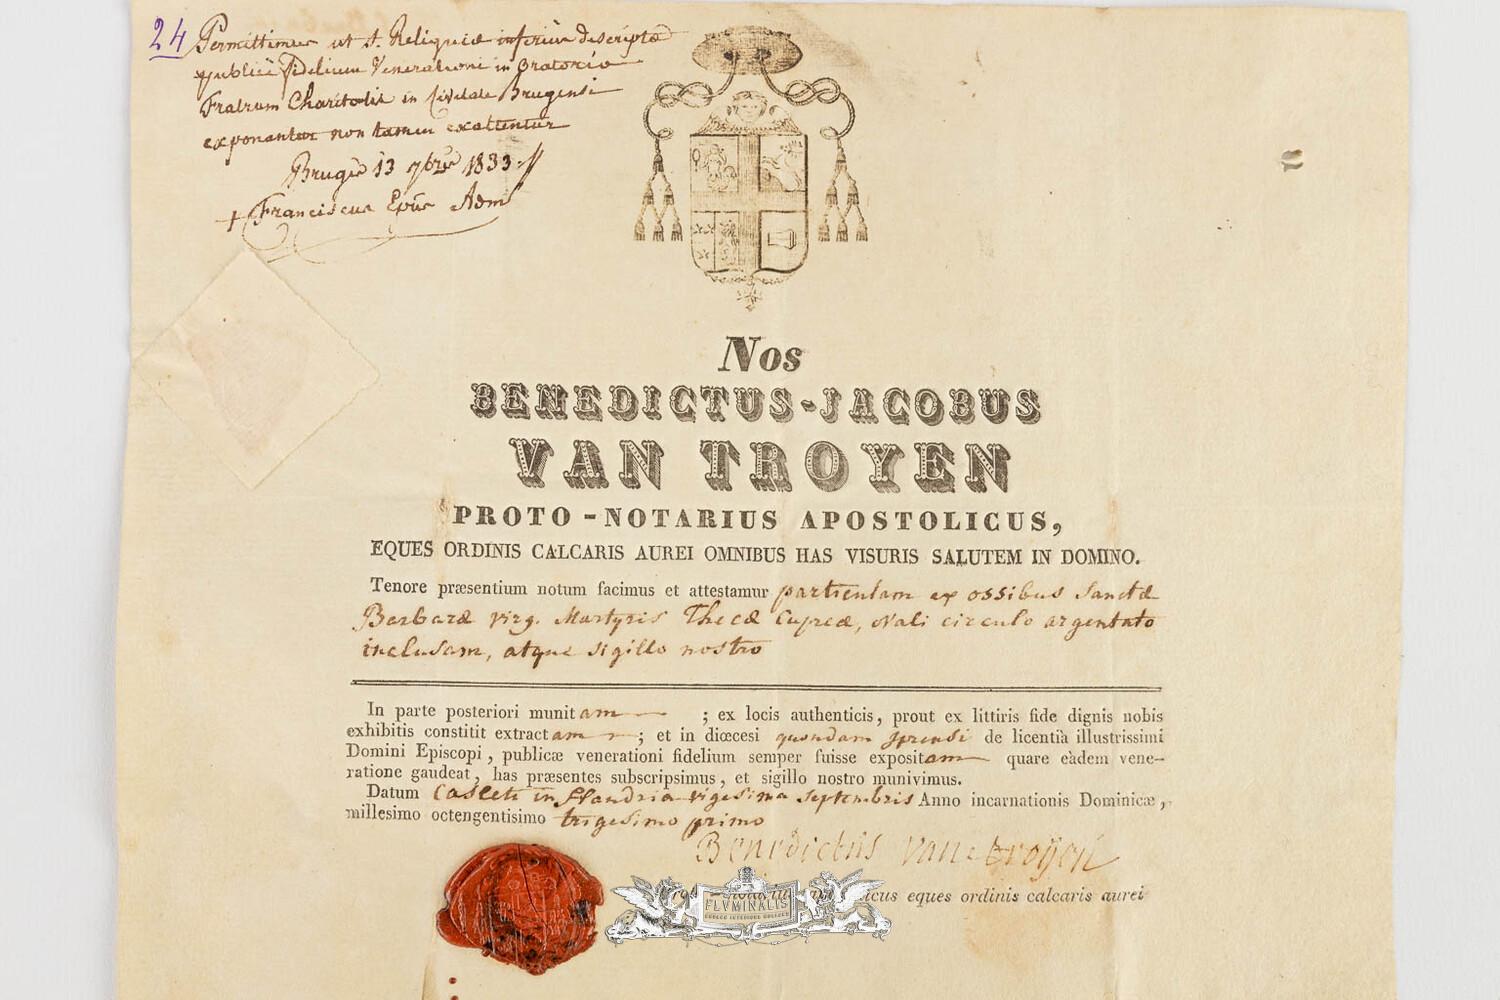 24 Permittimus ut S. Reliquiæ inferius descriptæ
publicæ fidelium Venerationi in Oratorio
Fratrum Charitatis in Civitate Brugensi
exponantur non tamen exaltentur
Brugis 13 7bris 1833
+ Franciscus Epūs Adm
Nos
BENEDICTUS-JACOBUS
VAN TROYEN
PROTO-NOTARIUS APOSTOLICUS,
EQUES ORDINIS CALCARIS AUREI OMNIBUS HAS VISURIS SALUTEM IN DOMINO.
Tenore præsentium notum facimus et attestamur particulam ex ossibus Sanctæ
Barbaræ virg. Martyris Thecæ Cupreæ, ovali circulo argentato
inclusam, atque sigillo nostro
In parte posteriori munitam ; ex locis authenticis, prout ex littiris fide dignis nobis
exhibitis constitit extractam ; et in diœcesi quondam Iprensi de licentiâ illustrissimi
Domini Episcopi, publicæ venerationi fidelium semper fuisse expositam quare eâdem vene-
ratione gaudeat, has præsentes subscripsimus, et sigillo nostro munivimus.
Datum Casleti in Flandria vigesima septembris Anno incarnationis Dominicæ,
millesimo octengentisimo trigesimo primo
Benedictus van troyen
icus eques ordinis calcaris aurei
FLVMINALIS